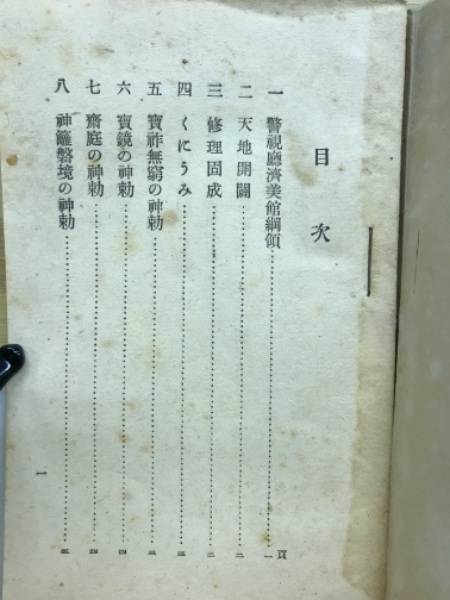 目次
一 警視廳濟美館綱領……一頁
二 天地開闢……二
三 修理固成……二
四 くにうみ……三
五 寶祚無窮の神勅……三
六 寶鏡の神勅……四
七 齋庭の神勅……四
八 神籬磐境の神勅……五
一